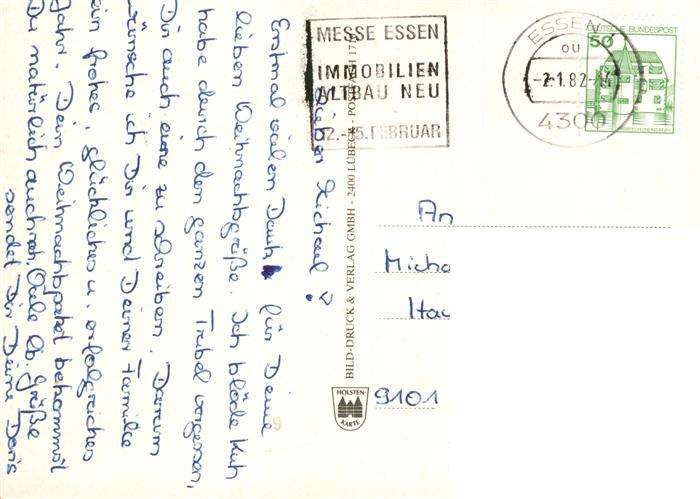 Lieber Michael!
Erstmal vielen Dank für Deine
lieben Weihnachtsgrüße. Ich blöde Kuh
habe durch den ganzen Trubel vergessen,
Dir auch eine zu schreiben. Darum
wünsche ich Dir und Deiner Familie
ein frohes, glückliches u. erfolgreiches
Jahr. Dein Weihnachtspaket bekommst
Du natürlich auch noch. Viele lb. Grüße
sendet Dir Deine Doris
MESSE ESSEN
IMMOBILIEN
ALTBAU NEU
FEBRUAR
ESSEN
ou
-2.1.82
4300
DEUTSCHE BUNDESPOST
50
BILD-DRUCK & VERLAG GMBH - 2400 LÜBECK - POSTFACH
HOLSTEN
KARTE
An
Micha
Hau
9101